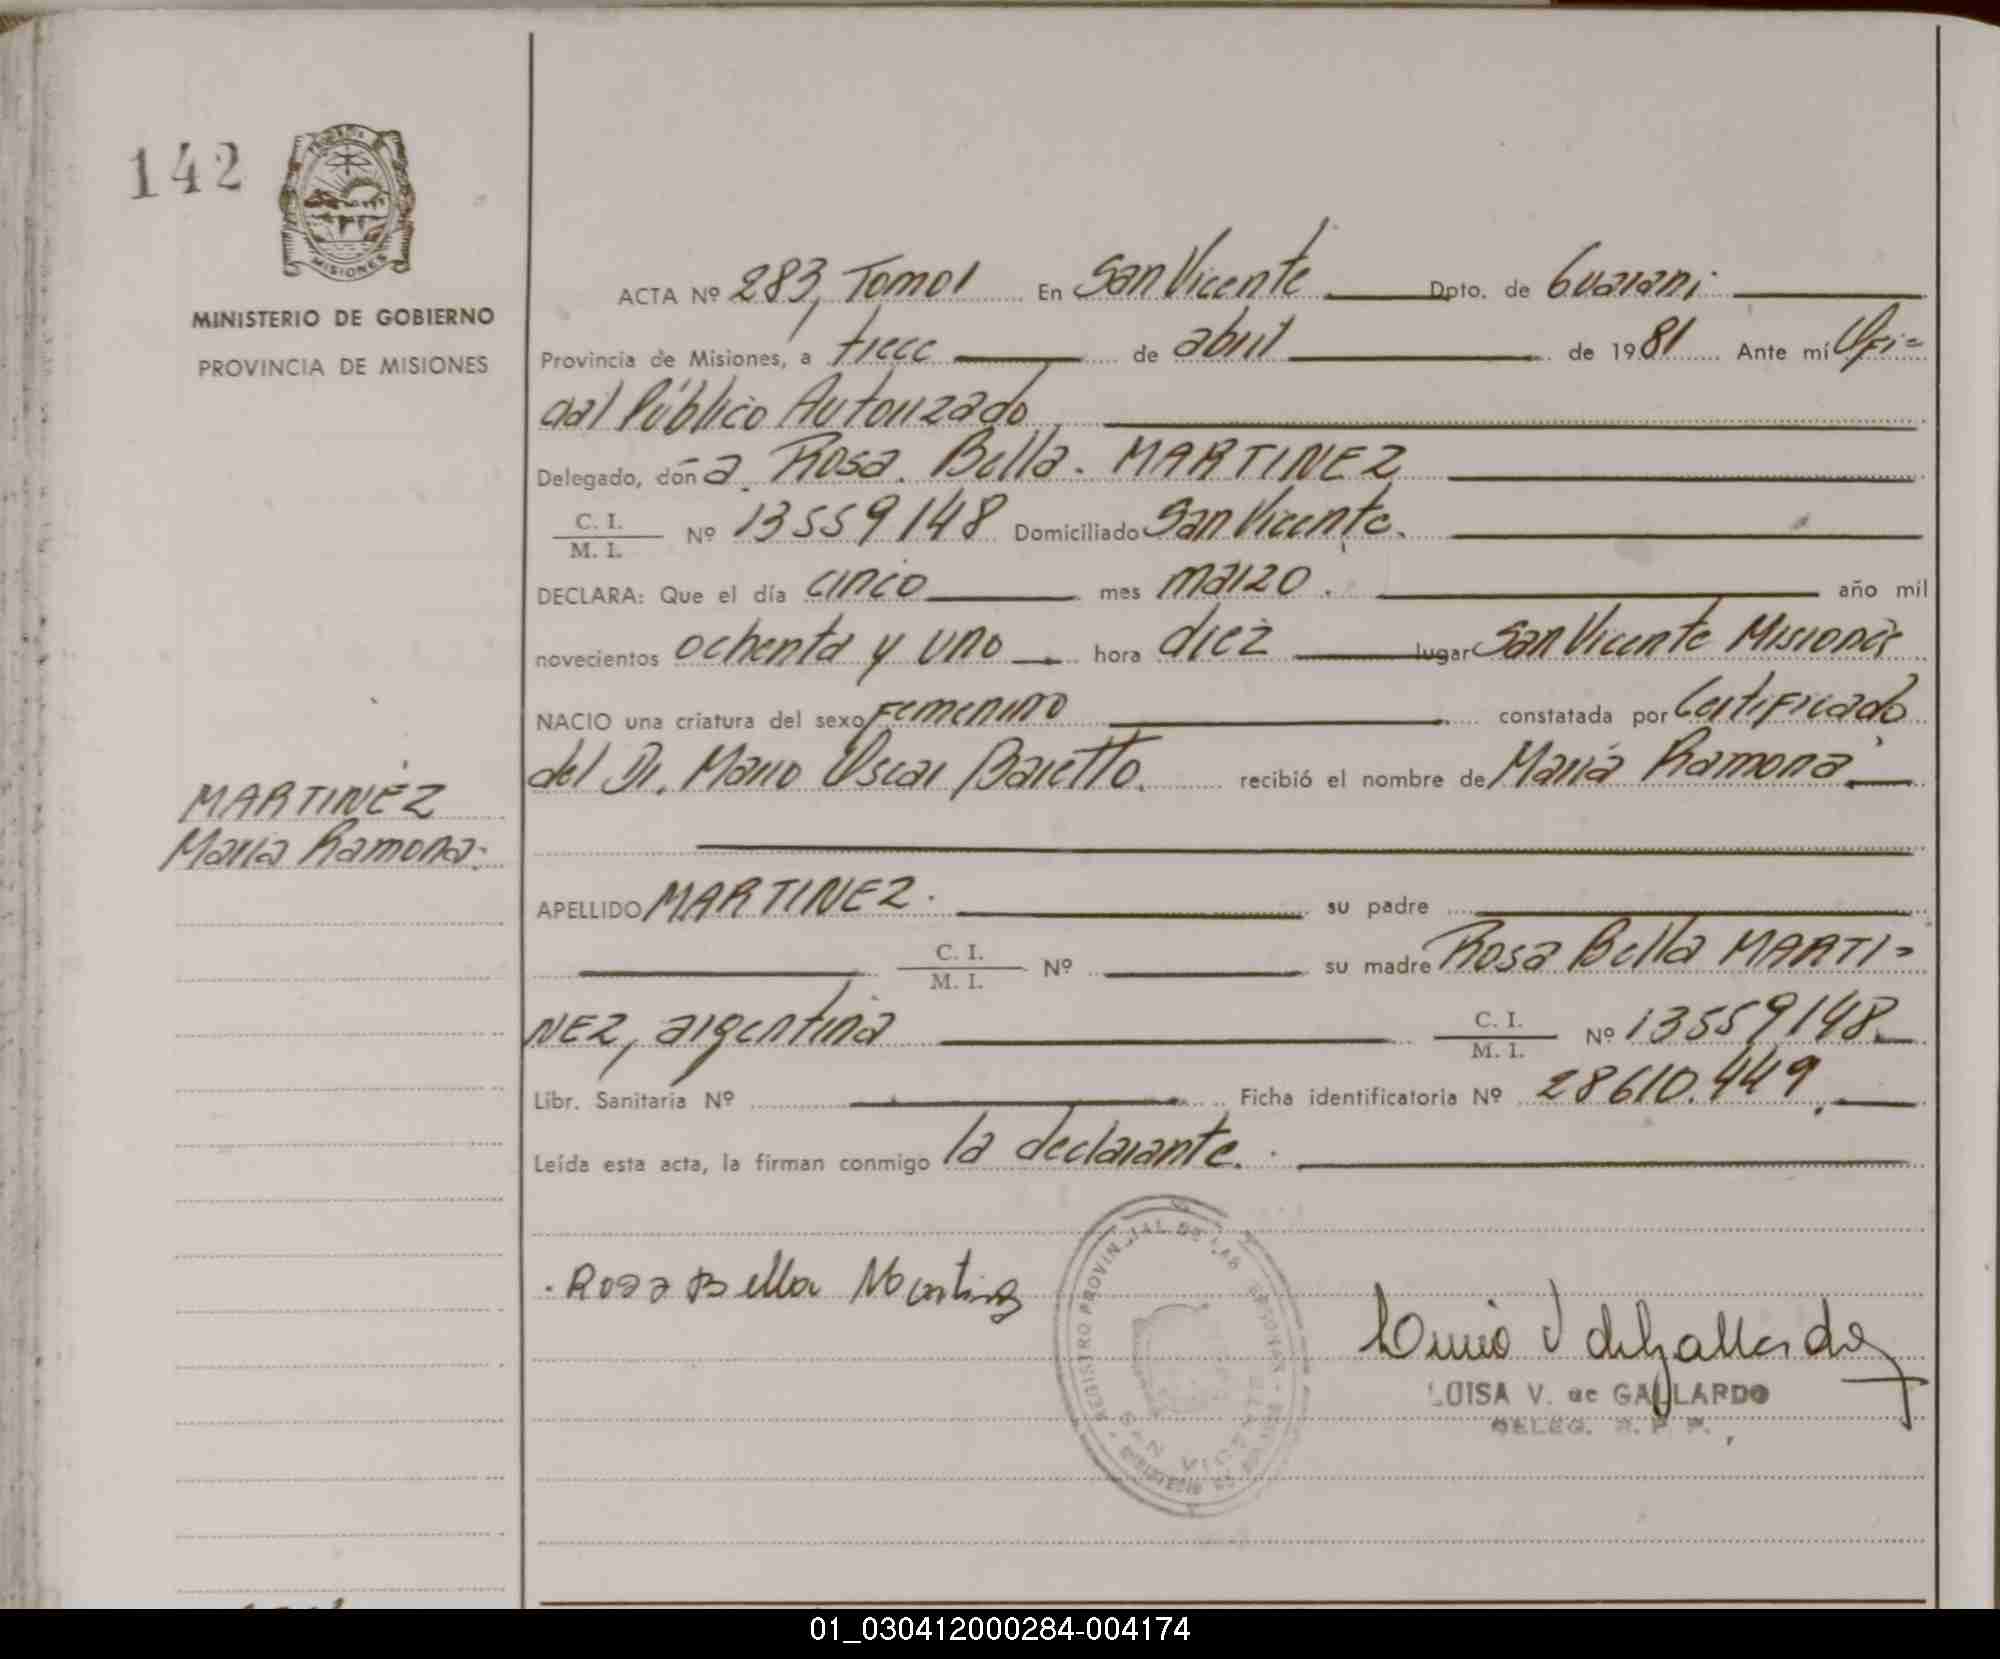 142
MISIONES
MINISTERIO DE GOBIERNO
PROVINCIA DE MISIONES
MARTINEZ
María Ramona.
ACTA Nº 283, Tomo I En San Vicente Dpto. de Guaraní
Provincia de Misiones, a trece de abril de 1981 Ante mí Ofi=
cial Público Autorizado
Delegado, doña Rosa Bella MARTINEZ
C. I. / M. I. Nº 13559148 Domiciliado San Vicente.
DECLARA: Que el día cinco mes marzo. año mil
novecientos ochenta y uno hora diez lugar San Vicente Misiones
NACIO una criatura del sexo Femenino constatada por Certificado
del Dr. Mario Oscar Baretto. recibió el nombre de María Ramona
APELLIDO MARTINEZ. su padre
C. I. / M. I. Nº su madre Rosa Bella MARTI=
NEZ, argentina C. I. / M. I. Nº 13559148.
Libr. Sanitaria Nº Ficha identificatoria Nº 28610.449.
Leída esta acta, la firman conmigo la declarante.
REGISTRO PROVINCIAL DE LAS PERSONAS
SAN VICENTE
Rosa Bella Martinez
LUISA V. de GALLARDO
DELEG. R. P. P.
01_030412000284-004174